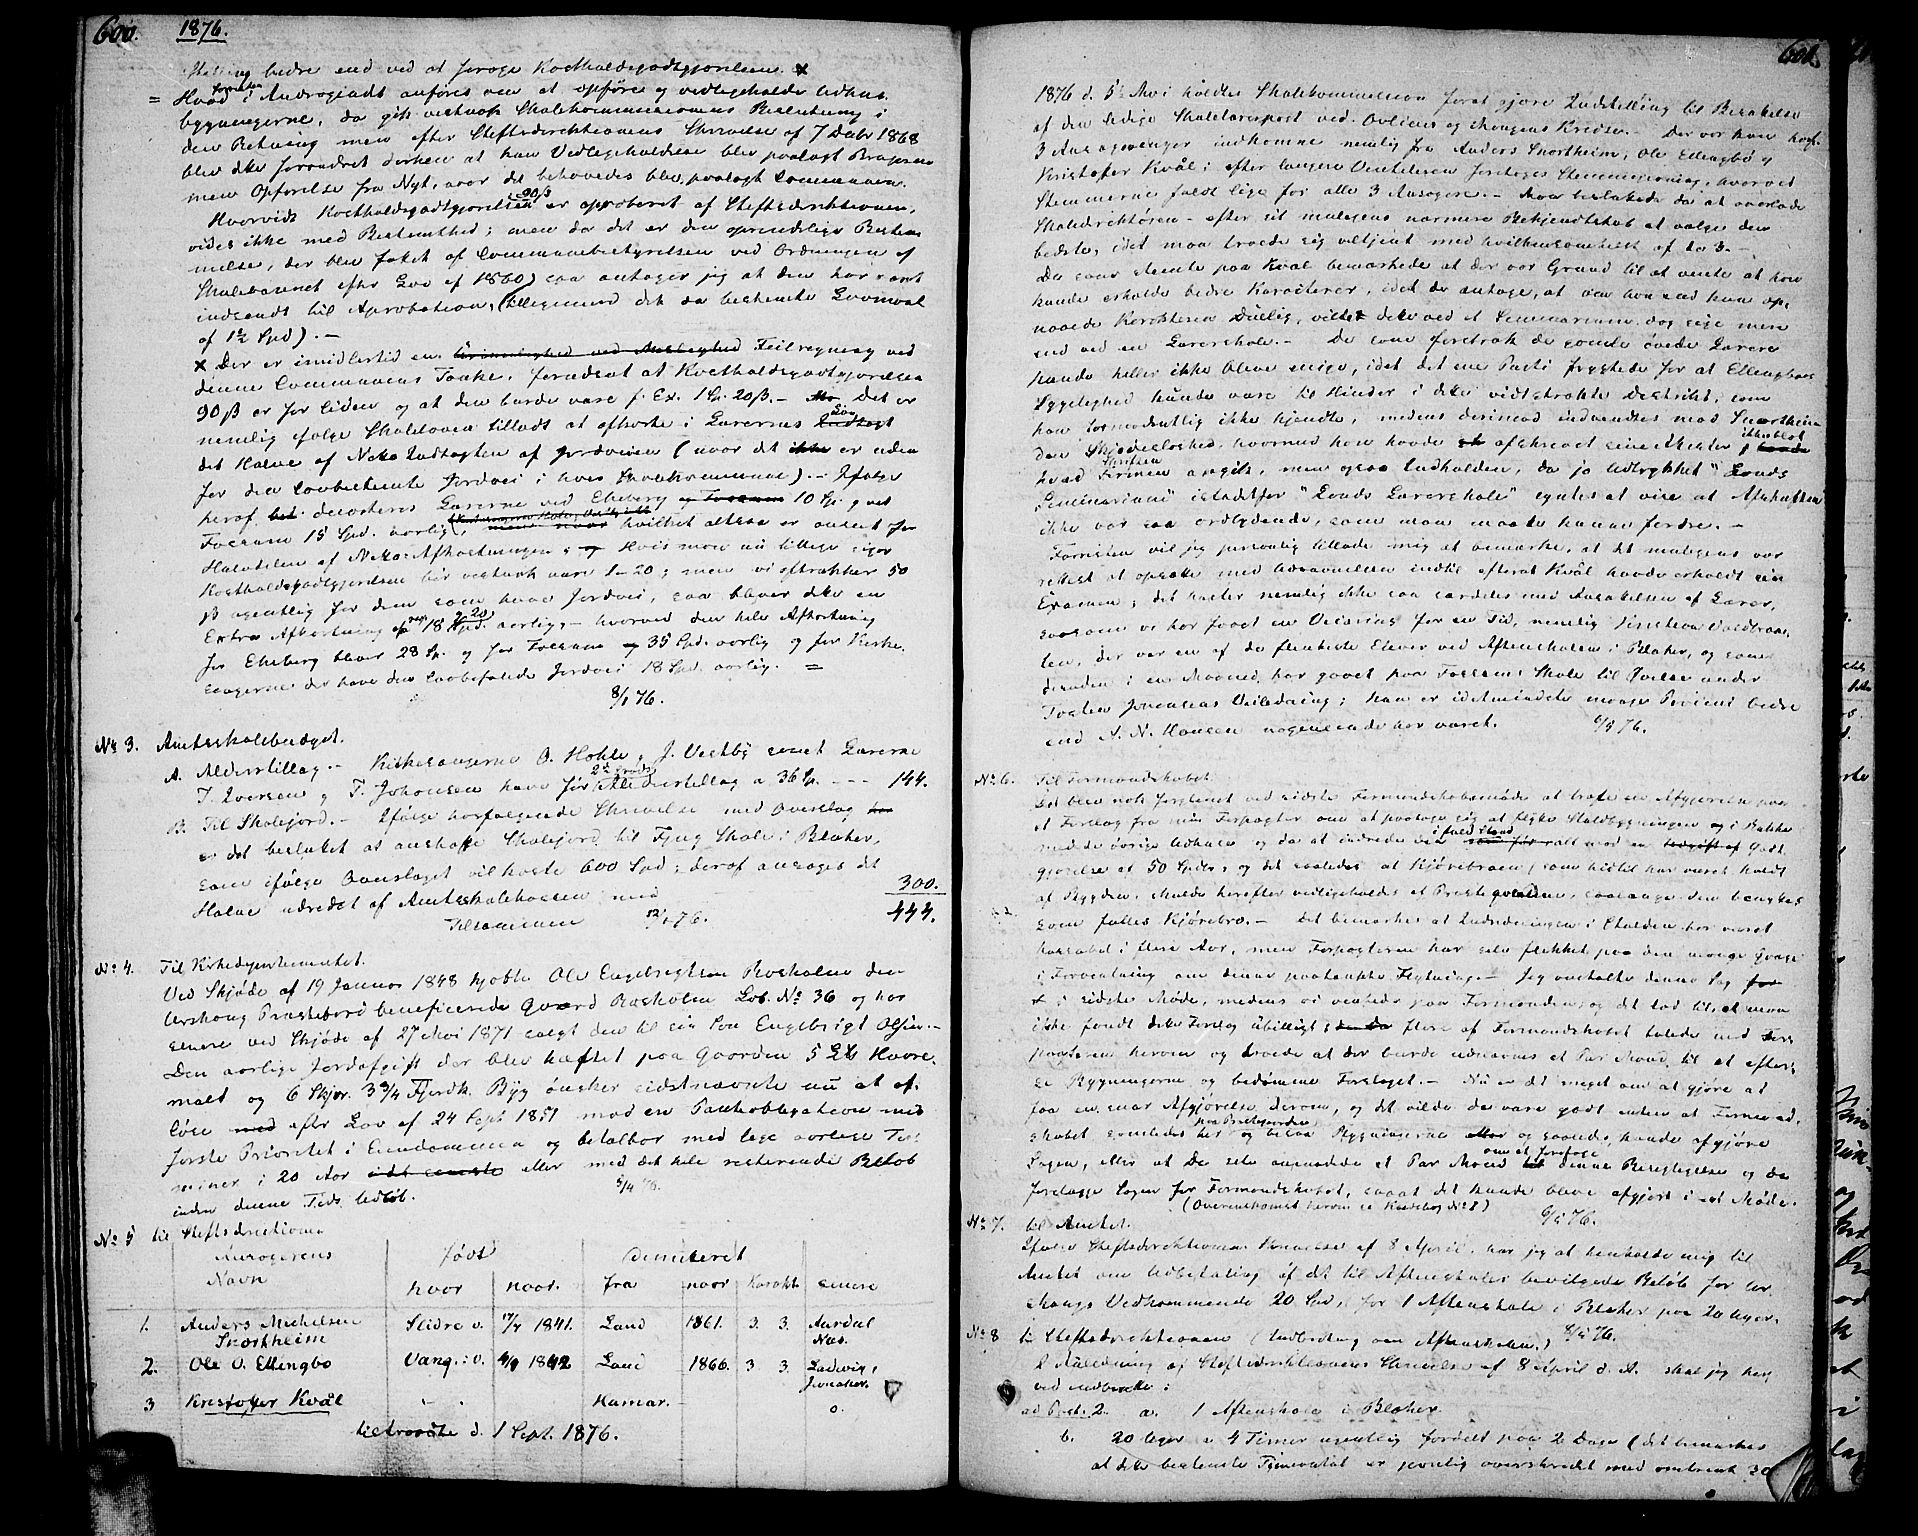 600. 1876.
bedre end ved at forøge Kostholdsgodtgjørelsen. x
= Hvad i Andragendet anføres om at opføre og vedligeholde Udhus
bygningerne, da gik vistnok Skolekommissionens Beslutning i
den Retning men efter Stiftsdirektionens Skrivelse af 7 Debr 1868
blev dette forandret derhen at kun Vedligeholdelse blev paalagt Brugeren
men Opførelse fra Nyt, naar det behøvedes blev paalagt Communen.
Hvorvidt Kostholdsgodtgjørelsen 90 ß er approberet af Stiftsdirektionen,
vides ikke med Bestemthed; men da det er den oprindelige Bestem
melse, der blev fattet af Communebestyrelsen ved Ordningen af
Skolevæsenet efter Lov af 1860, saa antager jeg at den har været
indsendt til Aprobation, (alligemed det da bestemte Lønmaal
af 1½ Spd). –
x Der er imidlertid en Feilregning ved
denne Communens Tanke, forudsat at Kostholdsgodtgjørelsen
90 ß er for liden og at den burde være f. Ex. 1 Sp. 20 ß. – Det er
nemlig ifølge Skoleloven tilladt at afkorte i Lærernes Løn
det Halve af Netto Indtægten af Jordveien (naar det ikke er uden
for den lovbestemte Jordvei i hver Skolekommune). – Ifølge
heraf decorteres Lærerne ved Ekeberg og Fossum 10 Sp. og ved
Fossum 15 Spd. aarlig, hvilket altsaa er ansat for
Halvdelen af Netto-Afkastningen; og Hvis man nu tillige siger
Kostholdsgodtgjørelsen bør vistnok være 1–20; men vi fratrækker 50
ß ugentlig for dem som have Jordvei, saa bliver dette en
Extra Afkortning af 18 Spd. aarlig, – hvorved den hele Afkortning
for Ekeberg bliver 28 Sp. og for Fossum 35 Spd. aarlig og for Kirke
sangerne der have den lovbefalede Jordvei 18 Spd. aarlig. =
8/1 76.
No 3. Amtsskolebudget.
A. Alderstillæg. – Kirkesangerne O. Hohle, J. Vestby samt Lærerne
T. Iversen og T. Johansen have før 2den Grads Alderstillæg a 36 Sp. - - - 144.
B. Til Skolejord. – Ifølge hosfølgende Skrivelse med Overslag
er det besluttet at anskaffe Skolejord til Fjug Skole i Blaker,
som ifølge Overslaget vil koste 600 Spd; deraf ansøges det
Halve udredet af Amtsskolekassen med 300.
Tilsammen 12/1 76. 444.
No 4. Til Kirkedepartementet.
Ved Skjøde af 19 Januar 1848 kjøbte Ole Engebregtsen Rosholm den
Urskoug Præstebord beneficerede Gaard Rosholm Løb. No 36 og har
senere ved Skjøde af 27 Mai 1871 solgt den til sin Søn Engebrigt Olsen. –
Den aarlige Jordafgift der blev hæftet paa Gaarden 5 Havre
malt og 6 Skjp. 3 3/4 Fjerdk. Byg ønsker sidstnævnte nu at af
løse med efter Lov af 24 Sept 1851 mod en Panteobligation med
første Prioritet i Eiendommen og betalbar med lige aarlige Ter
miner i 20 Aar eller med det hele resterende Beløb
inden denne Tids Udløb. 5/4 76.
No 5 til Stiftsdirektionen
Ansøgerens Navn | født hvor | naar. | Dimitteret fra | naar | Karakt. | senere
1. Anders Mikkelsen Snortheim | Slidre v. | 17/4 1841. | Land | 1861. | 3. 3. | Aurdal Næs.
2. Ole O. Ellingbø | Vang. v. | 4/9 1842 | Land | 1866. | 3 3. | Ludvig, Jevnaker.
3 Kristoffer Kvål | - | - | Hamar. | - | | o.
tiltraadte d. 1 Sept. 1876.
601.
1876 d. 5te Mai holdtes Skolekommission forat gjøre Indstilling til Besættelse
af den ledige Skolelærerpost ved Ovliens og Mangens Kredse. – Der var kun
3 Ansøgninger indkomne nemlig fra Anders Snortheim, Ole Ellingbø og
Kristoffer Kvål; efter langere Ventilation foretoges Stemmegivning, hvorved
Stemmerne faldt lige for alle 3 Ansøgere. – Man besluttede da at overlade
Skoledirektøren – efter sit muligens nærmere Bekjendtskab at vælge den
bedste, idet man troede sig vel tjent med hvilkensomhelst af de 3. –
De som stemte paa Kvål bemærkede at der var Grund til at vente at han
kunde erholde bedre Karakterer, idet de antoge, at om han end kun op
naaede Karakteren Duelig, vilde dette ved et Seminarium dog sige mere
end ved en Lærerskole. – De som foretrak de gamle øvede Lærere
kunde heller ikke blive enige, idet det ene Parti frygtede for at Ellingbøes
Sygelighed kunde være til Hinder i dette vidtstrakte Destrikt, som
han formodentlig ikke kjendte, medens derimod indvendtes mod Snortheim
den Skjødesløshed, hvormed han havde afskrevet sine Attester, ikke blot
hvad Skriften angik, men ogsaa Indholdet, da jo Udtrykket "Lands
Seminarium" istedetfor "Lands Lærerskole" syntes at vise at Afskriften
ikke var saa ordlydende, som man maatte kunne fordre. –
Forresten vil jeg personlig tillade mig at bemærke, at det muligens var
rettest at opsætte med Udnævnelsen indtil efterat Kvål havde erholdt sin
Examen; det haster nemlig ikke saa særdeles med Ansættelsen af Lærer,
eftersom vi har faaet en Vicarius for en Tid, nemlig Kristian Voldbraa
ten, der var en af de flinkeste Elever ved Aftenskolen i Blaker, og som
desuden i en Maaned har gaaet paa Fossum Skole til Øvelse under
Torsten Johansens Veiledning; han er idetmindste mange Procent bedre
end N. N. Hansen nogensinde har været. 6/5 76.
No 6. Til Formandskabet.
Det blev nok forglemt ved sidste Formandskabsmøde at træffe en Afgjørelse paa
et Forslag fra min Forpagter om at paatage sig at flytte Staldbygningen og i Bekke
nede øvrige Udhuse og da at indrede den i fuld Stand alt mod en Godt
gjørelse af 50 Spdlr, og det saaledes at Kjørebroen, som hidtil har været holdt
af Bygden, skulde herefter vedligeholdes af Præstegaarden, saalænge den benyttes
som fælles Kjørebro. – Det bemærkes at Indredningen i Stalden har været
kassabel i flere Aar, men Forpagteren har selv flikket paa den mange Gange
i Forventning om denne paatænkte Flytning. – Jeg omtalte denne Sag
i sidste Møde, medens vi ventede paa Formanden, og det lod til, at man
ikke fandt dette Forslag ubilligt; flere af Formandskabet talede med For
pagteren herom og troede at der burde udnævnes et Par Mænd til at efter
se Bygningerne og bedømme Forslaget. – Nu er det meget om at gjøre at
faa en snar Afgjørelse derom, og det vilde da være godt enten at Formand
skabet samledes her paa Præstegaarden og besaa Bygningerne og saaledes kunde afgjøre
Sagen, eller at De selv anmodede et Par Mænd om at foretage denne Besigtigelse og da
forelægge Sagen for Formandskabet, saaat det kunde blive afgjort i et Møde.
(Overenskomst herom se Kaldsbog No 8) 6/5 76.
No 7. til Amtet.
Ifølge Stiftsdirektionens Skrivelse af 8 April. har jeg at henholde mig til
Amtet om Udbetaling af det til Aftenskoler bevilgede Beløb for Ur
skougs Vedkommende 20 Spd, for 1 Aftenskole i Blaker paa 20 Uger.
No 8 til Stiftsdirektionen (Indbretning om Aftenskolen.) 6/5 76.
I Anledning af Stiftsdirektionens Skrivelse af 8 April d. A. skal jeg her
ved indberette:
ad Post. 2. a. 1 Aftenskole i Blaker.
b. 20 Uger a 4 Timer ugentlig fordelt paa 2 Dage (det bemærkes
at dette bestemte Timeantal er jevnlig overskredet med omtrent 30